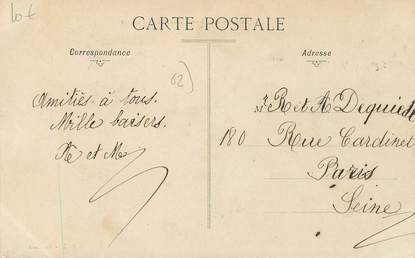 lot
CARTE POSTALE
Correspondance
Adresse
62)
Amitiés à tous.
Mille baisers.
et M
R et A
180 Rue Cardinet
Paris
Seine